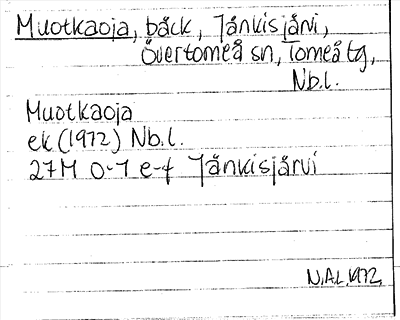 Muotkaoja, bäck, Jänkisjärvi,
Övertorneå sn, Torneå tg,
Nb.l.
Muotkaoja
ek (1972) Nb.l.
27M 0-1 e-f Jänkisjärvi
N.Ä.L. 1972.